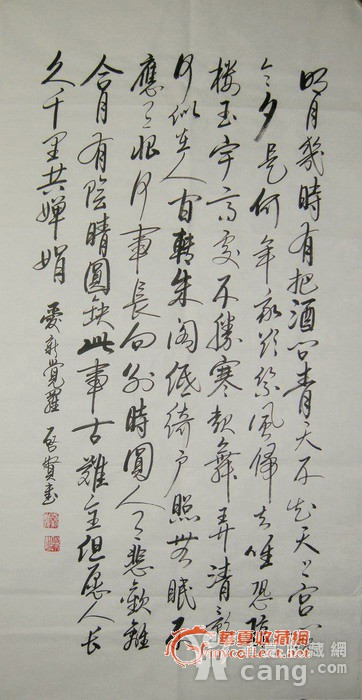 明月幾時有把酒问青天不知天上宫阙
今夕是何年我欲乘風归去唯恐琼
楼玉宇高处不勝寒起舞弄清影
何似在人间轉朱阁低绮户照無眠不
應有恨何事長向别時圓人有悲歡離
合月有陰晴圓缺此事古難全但愿人长
久千里共嬋娟
愛新覺羅 啓賢書
華夏收藏網
mycollect.com
cang.com